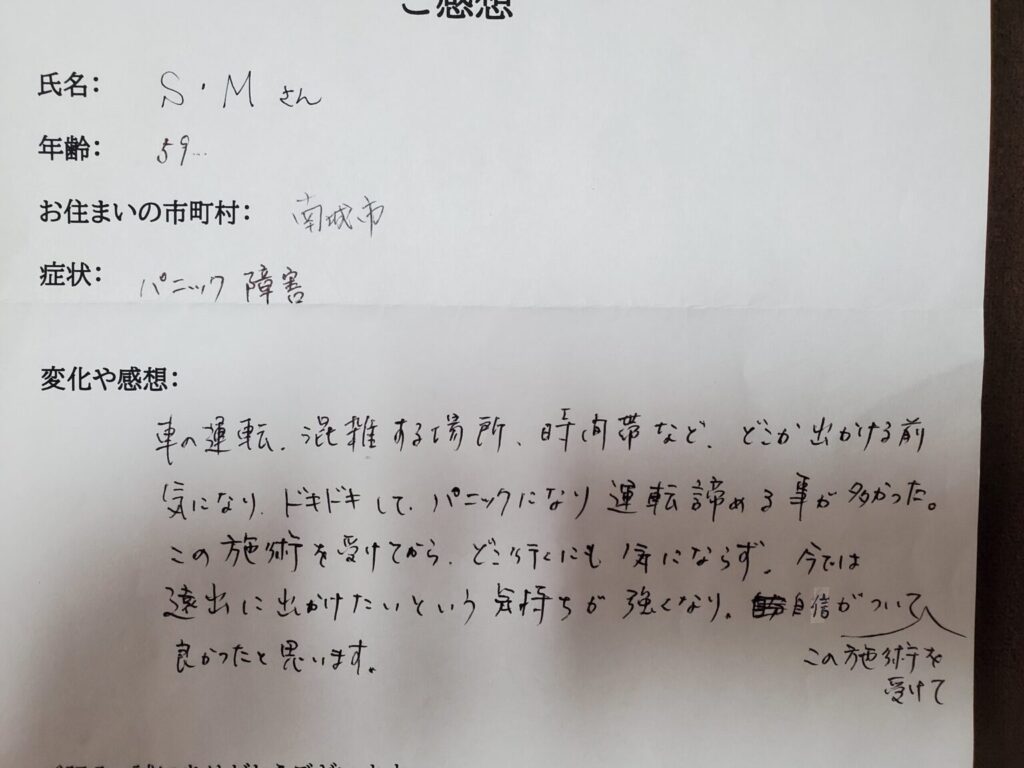 ご感想
氏名： S・M さん
年齢： 59
お住まいの市町村： 南城市
症状： パニック障害
変化や感想：
車の運転、混雑する場所、時間帯など、どこか出かける前
気になり、ドキドキして、パニックになり運転諦める事が多かった。
この施術を受けてから、どこ行くにも気にならず、今では
遠出に出かけたいという気持ちが強くなり、自信がついて
この施術を
受けて
良かったと思います。